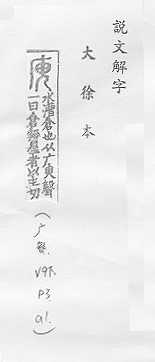 説文解字
大徐本
庾
水漕倉也从广臾聲
一曰倉無屋者以主切
(广部.
V9下.
P3.
a1.)